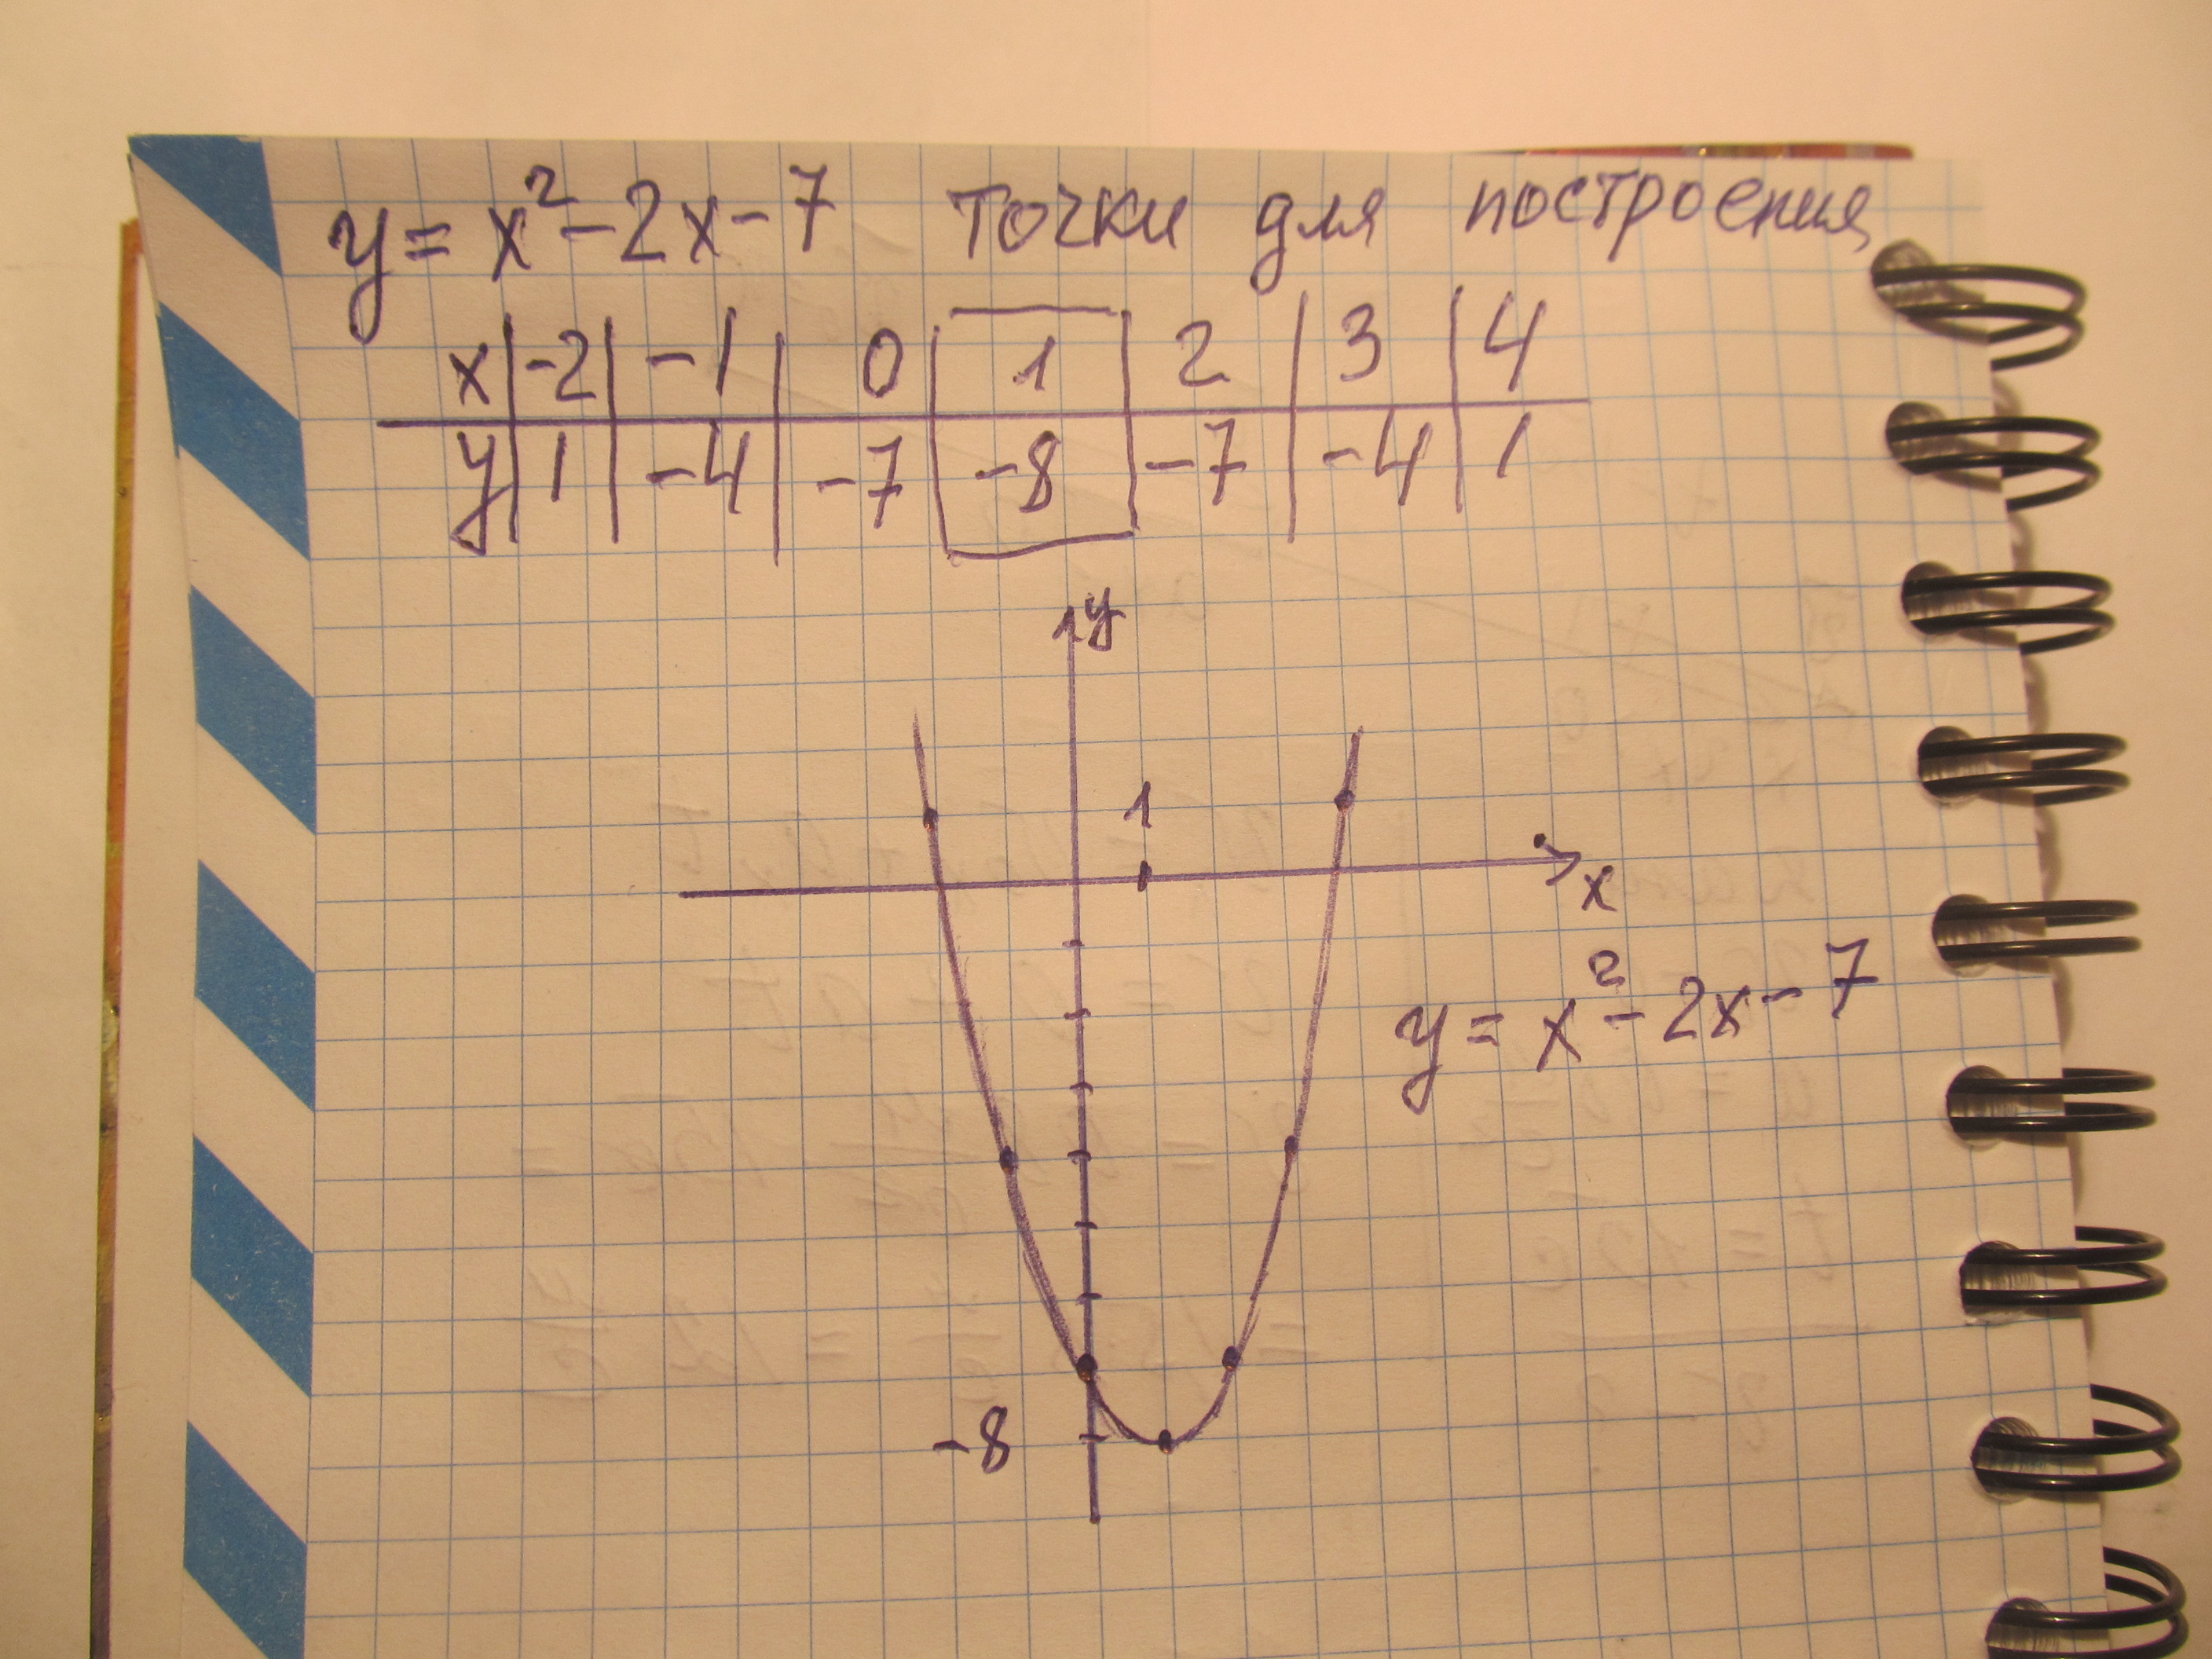 y = x² - 2x - 7 точки для построения
x | -2 | -1 | 0 | 1 | 2 | 3 | 4
y | 1 | -4 | -7 | -8 | -7 | -4 | 1
y
1
x
y = x² - 2x - 7
-8